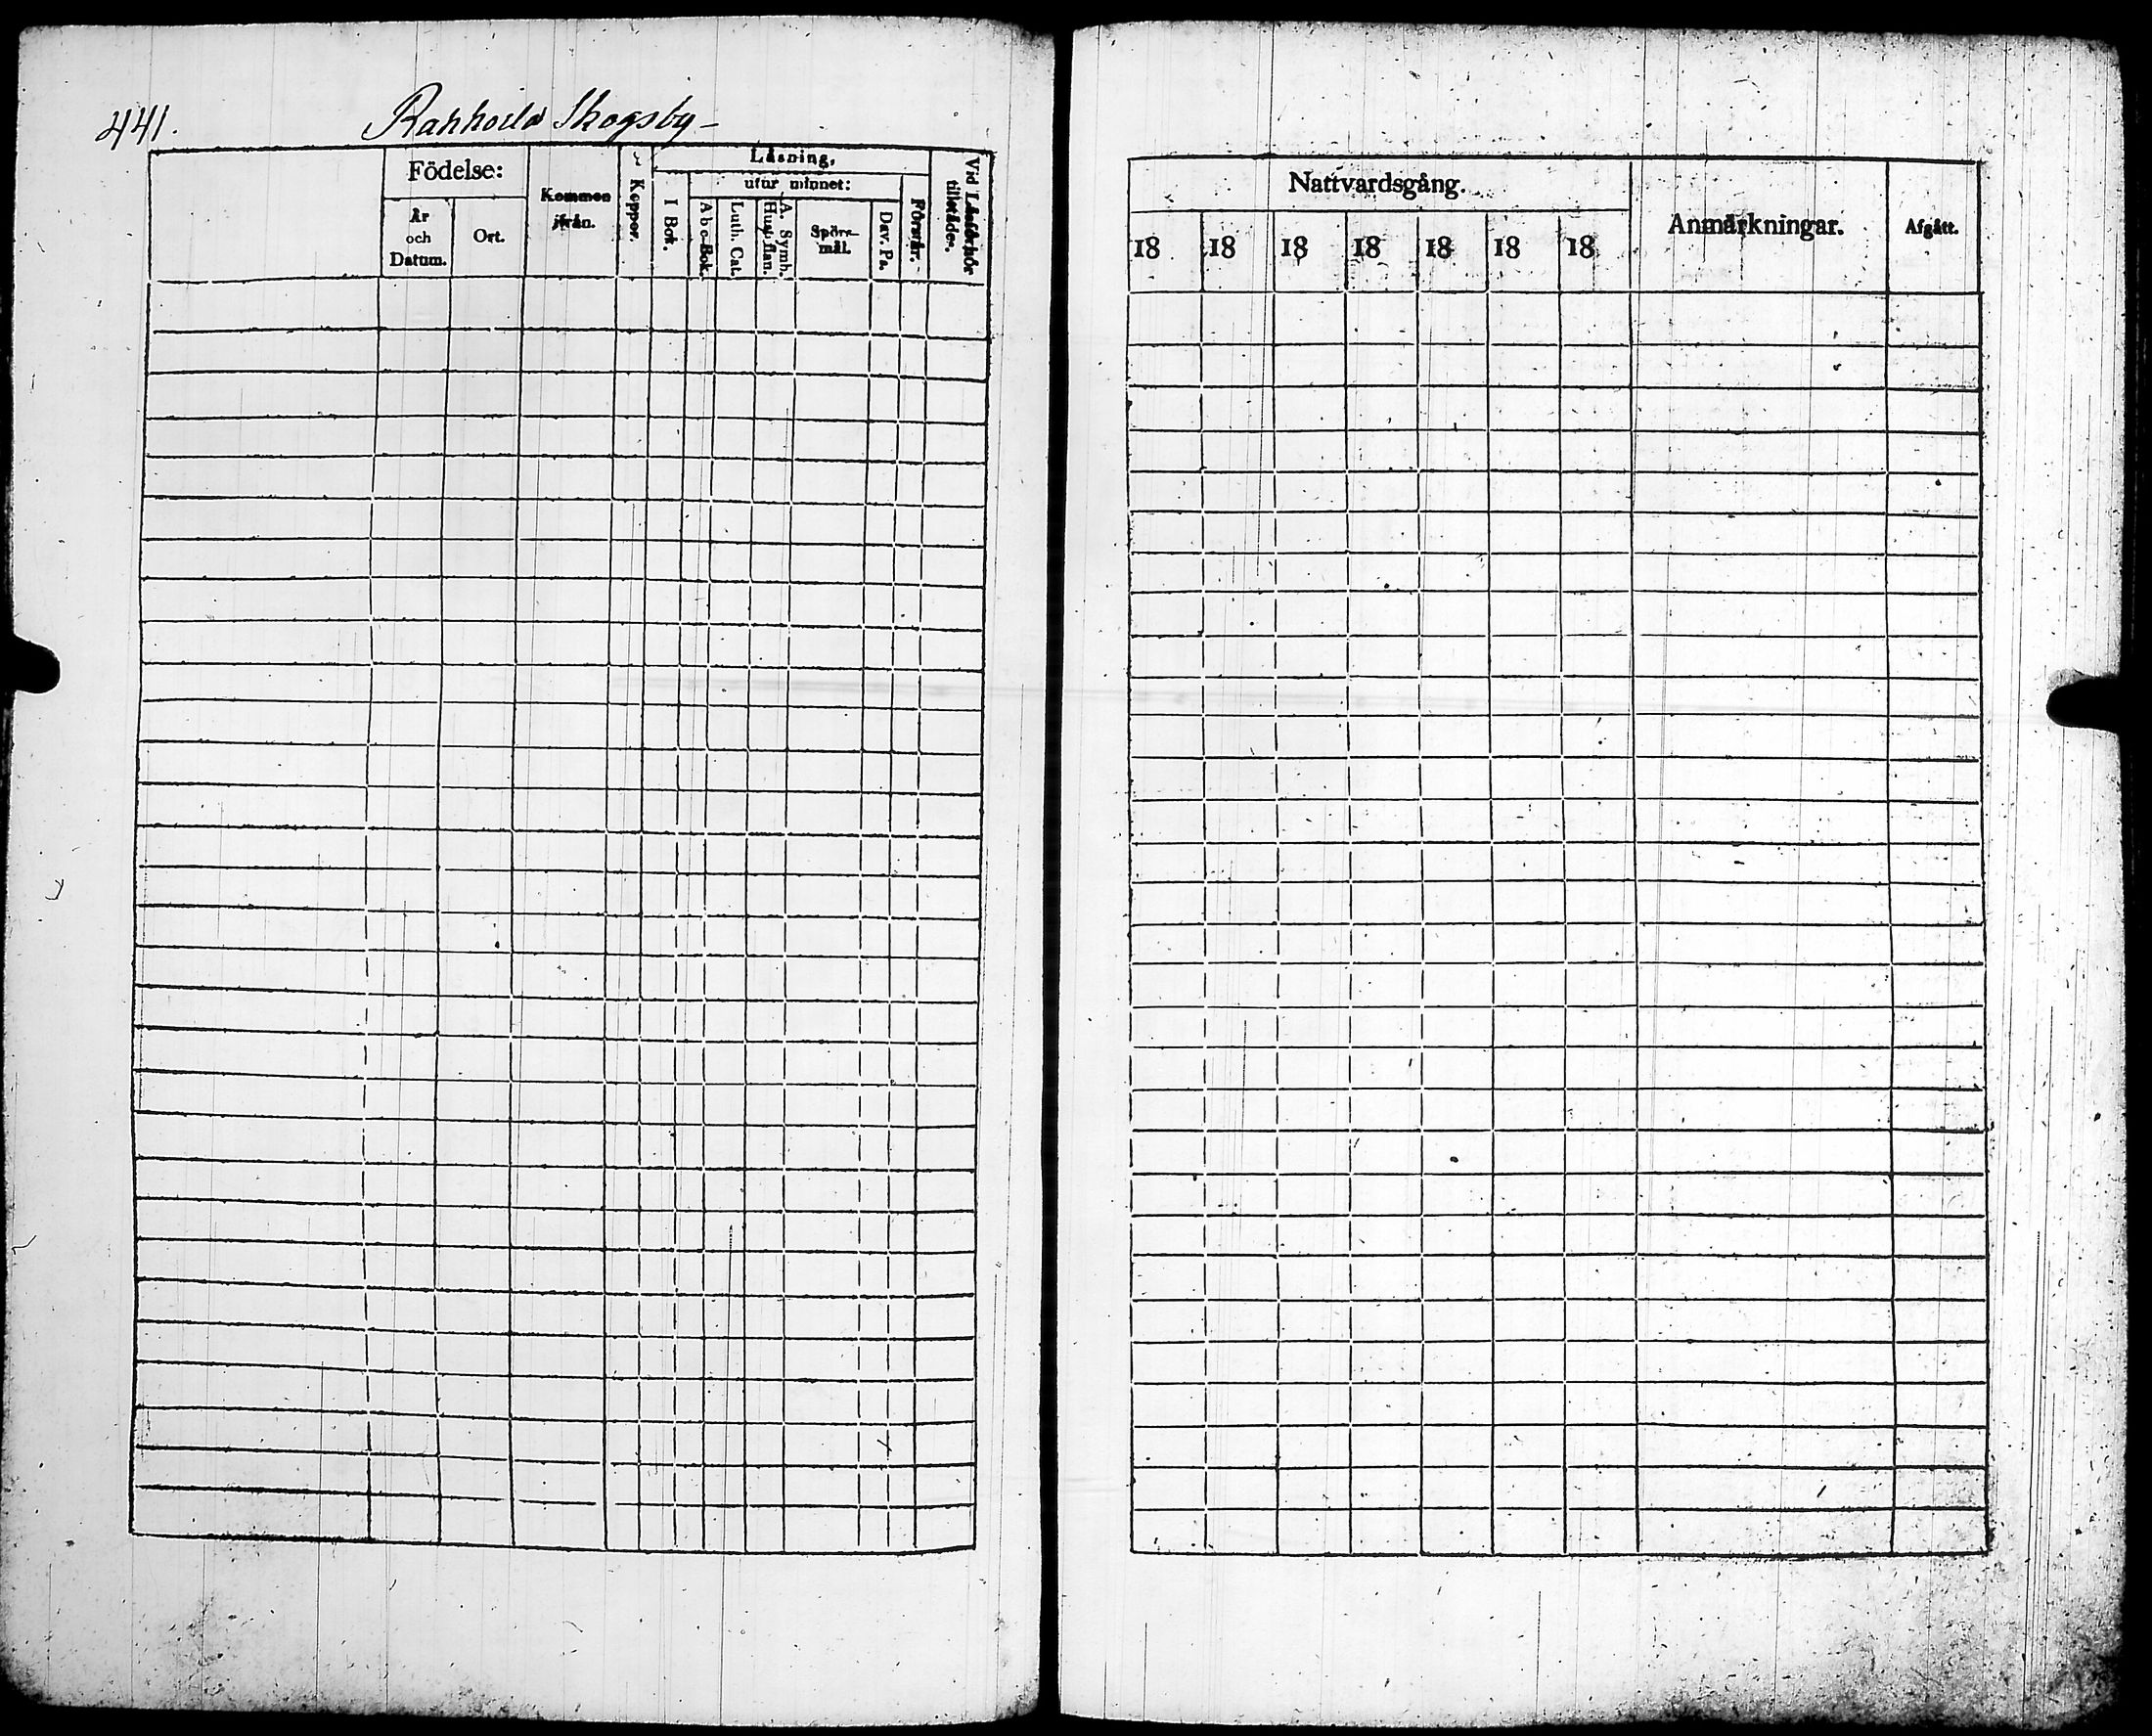 441.
Skogsby
Födelse:
År och Datum.
Ort.
Kommen ifrån.
Koppor.
Läsning,
I Bok.
utur minnet:
Abc-Bok.
Luth. Cat.
A. Symb. Hust.flan.
Spörs-mål.
Dav. Ps.
Förstår.
Vid Läsförhör tillstädes.
Nattvardsgång.
18 18 18 18 18 18 18
Anmärkningar.
Afgått.